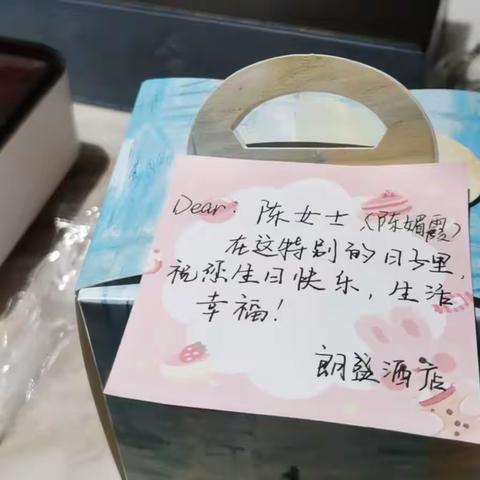 Dear: 陈女士（陈媚霞）
在这特别的日子里,
祝您生日快乐, 生活
幸福!
朗盛酒店